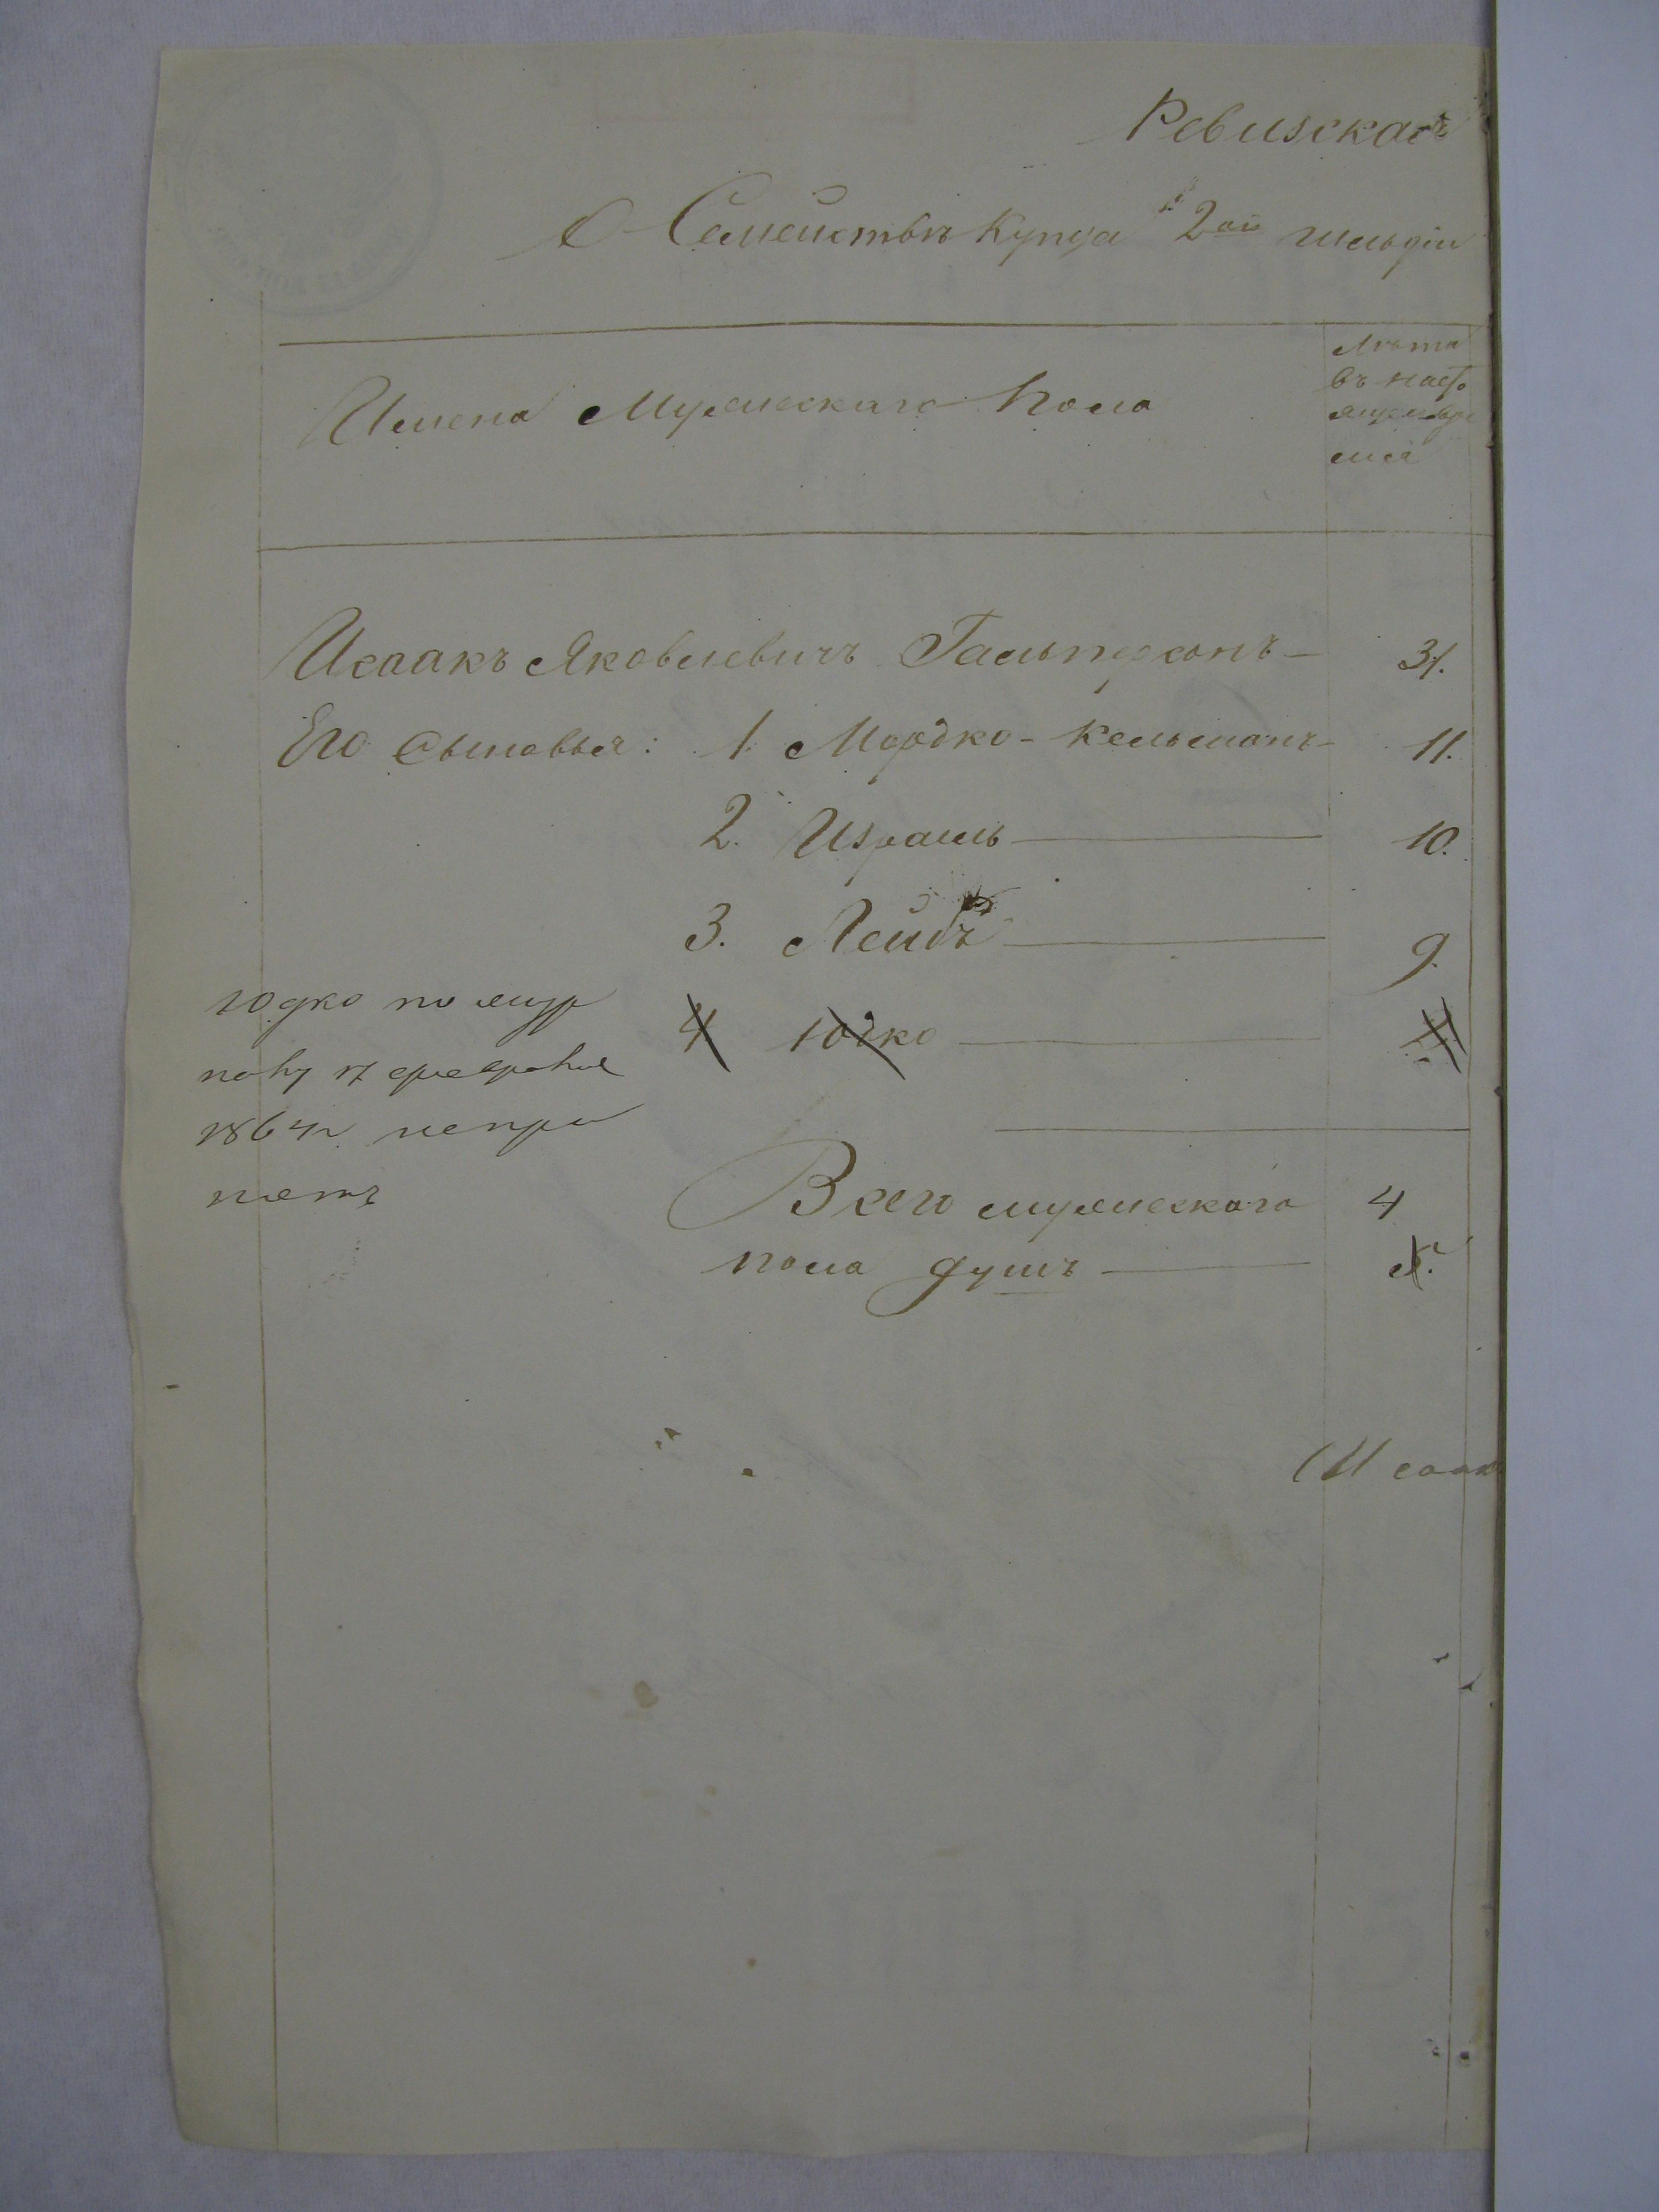 Ревизская
О Семействѣ Купца 2ой гильдіи
Имена Мужескаго Пола
Лѣта
въ насто
ящемъ вре
мѣ
Исаакъ Яковлевичъ Гальперсонъ — 31.
Его Сыновья: 1 Мордко - Кельманъ - 11.
2. Израиль — 10.
3. Лейбъ — 9.
4 Юдко —
Юдко по
17 февраля
1864 г. непри
нятъ
Всего мужескаго 4
пола душъ — 5.
Исаак